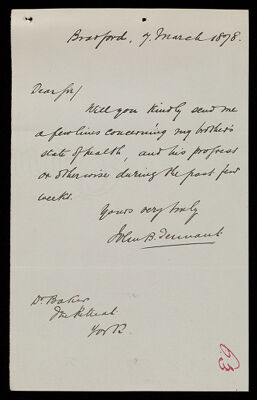 Bradford, 7. March 1878.
Dear Sir/
Will you kindly send me
a few lines concerning my brother's
state of health, and his progress
or otherwise during the past few
weeks.
Yours very truly
John B. Tennant
Dr Baker
The Retreat
York.
63